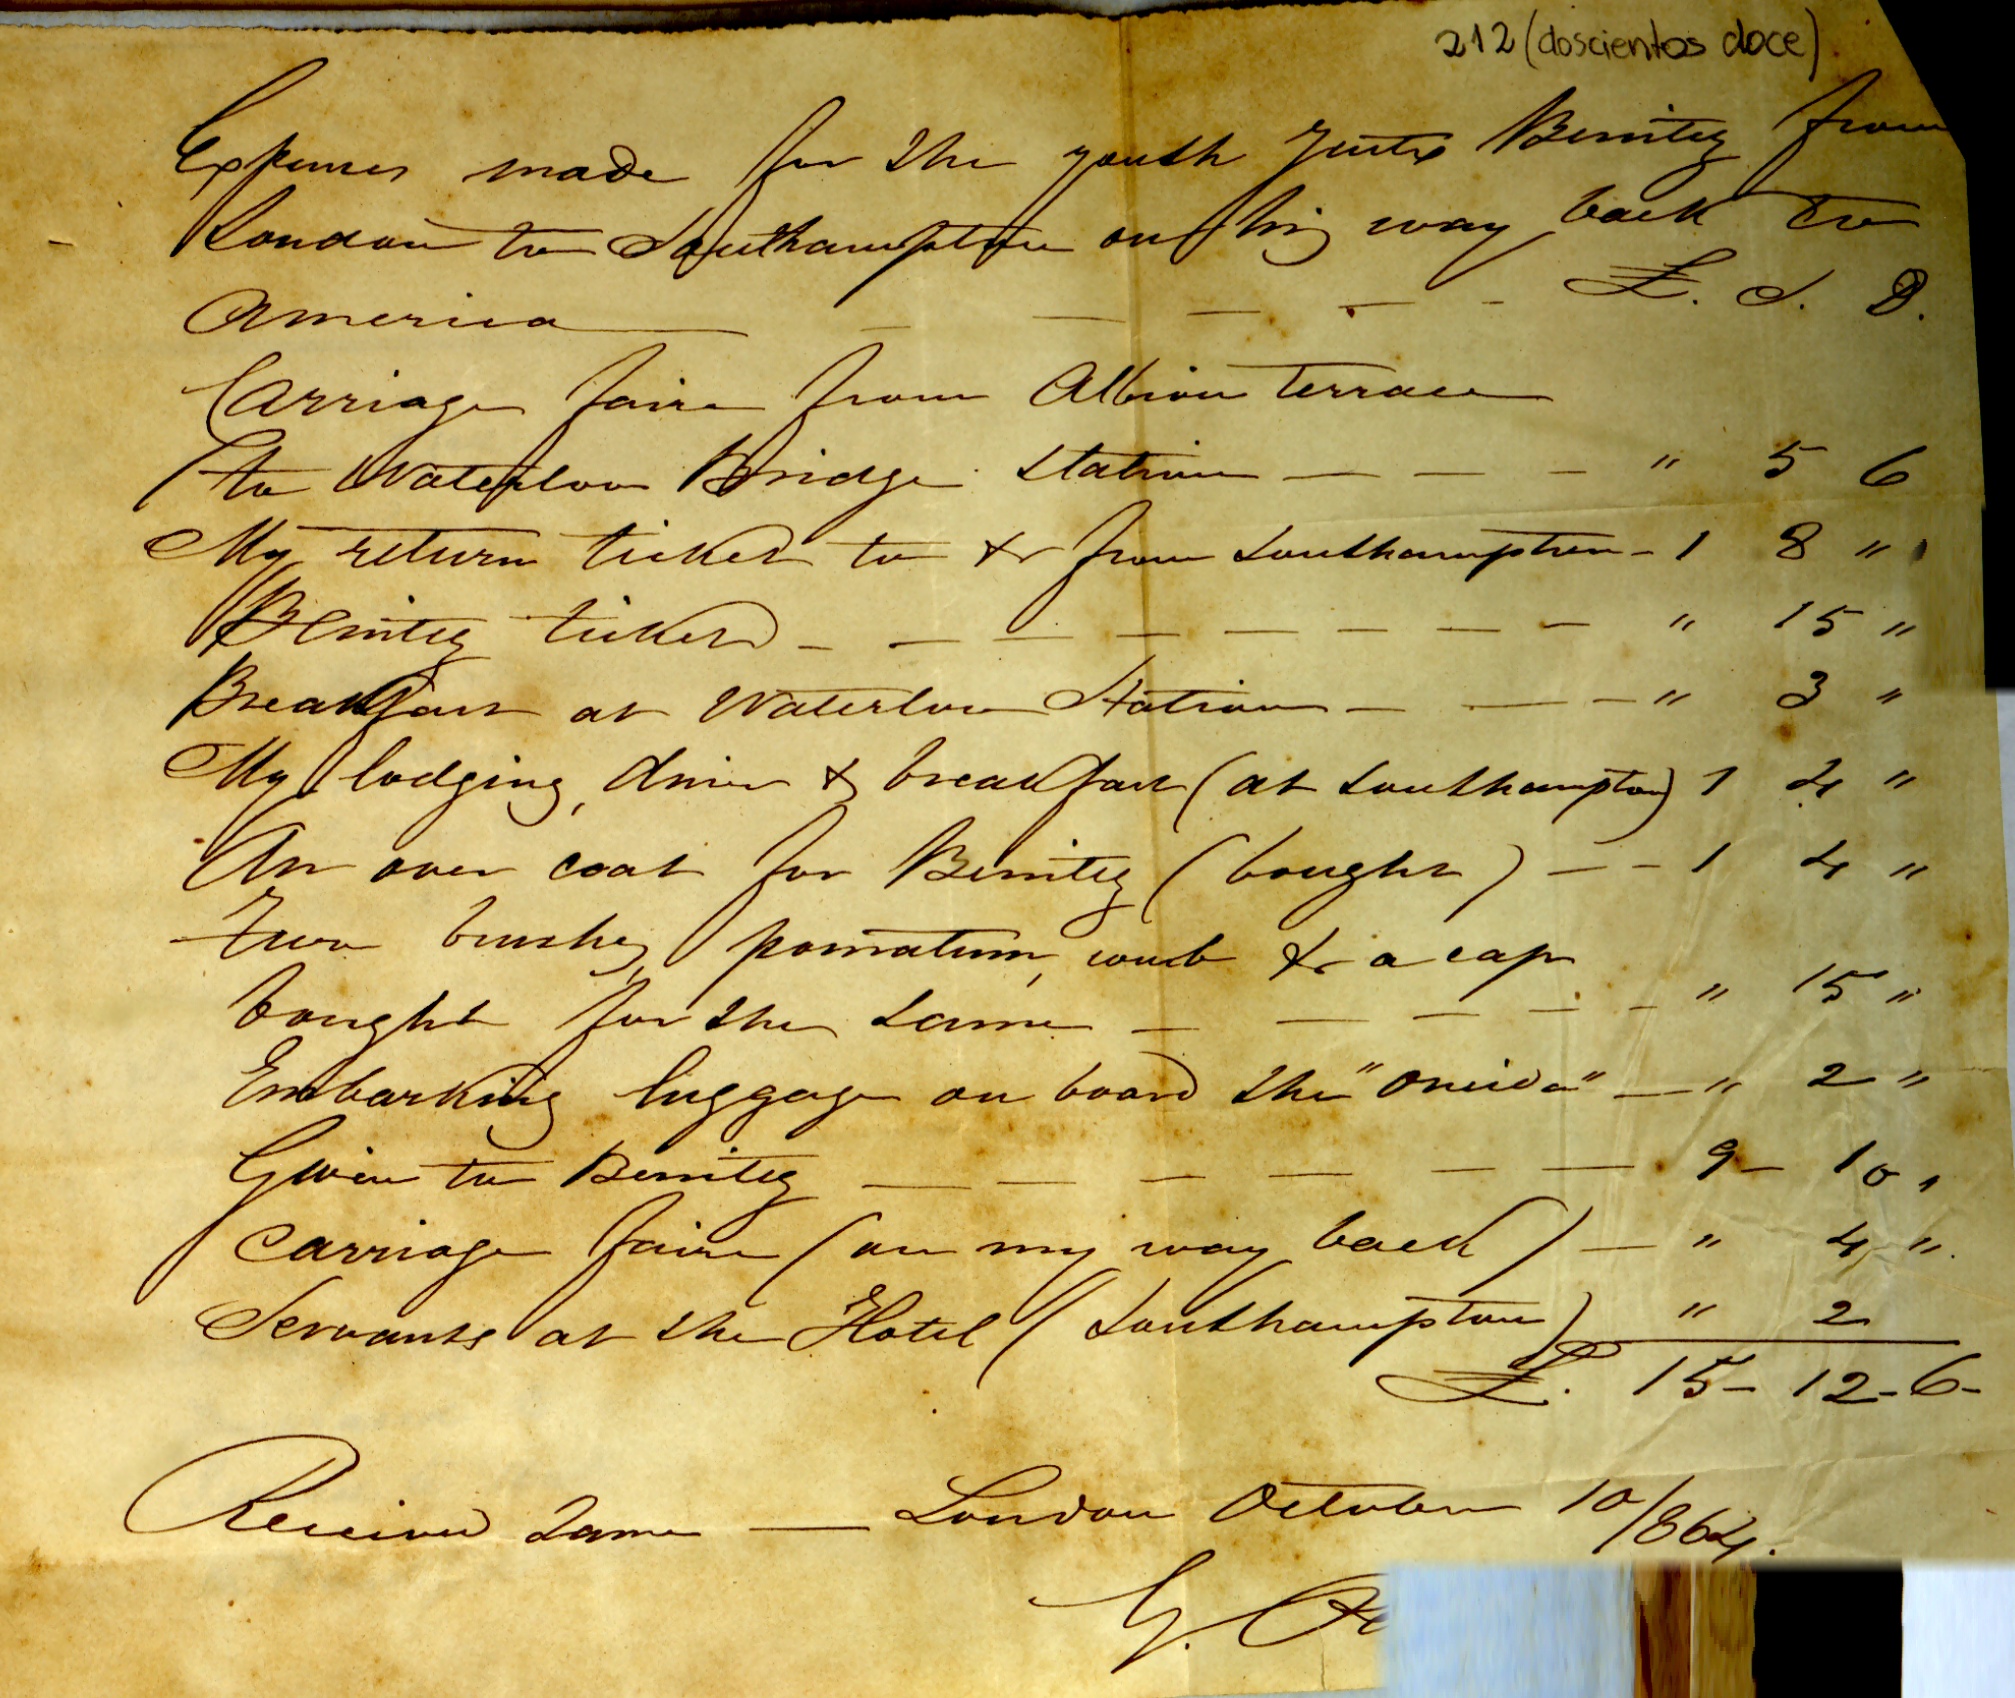 212 (doscientos doce)
Expenses made for the youth Justo Benitez from
London to Southampton on his way back to
America — — — — — £. S. D.
Carriage faire from Albion Terrace
to Waterloo Bridge Station — — — " 5 6
My return ticket to & from Southampton - 1 8 "
Benitez ticket - — — — — — — — " 15 "
Breakfast at Waterloo Station — — — " 3 "
My lodging, diner & breakfast (at Southampton) 1 4 "
An over coat for Benitez (bought) — — 1 4 "
Two brushes, pomatum, comb & a cap
bought for the same — — — — - " 15 "
Embarking luggage on board the "Oneida" — " 2 "
Given to Benitez — — — — — — 9 - 10 "
Carriage faire (on my way back) — " 4 ".
Servants at the Hotel (Southampton) " 2
£. 15 - 12 - 6 -
Received same — London October 10/864.
G.